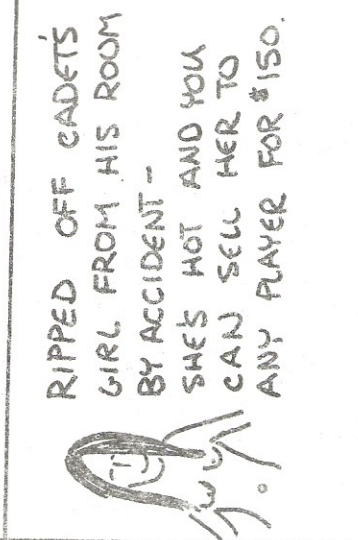 RIPPED OFF CADET'S
GIRL FROM HIS ROOM
BY ACCIDENT-
SHE'S HOT AND YOU
CAN SELL HER TO
ANY PLAYER FOR $150.